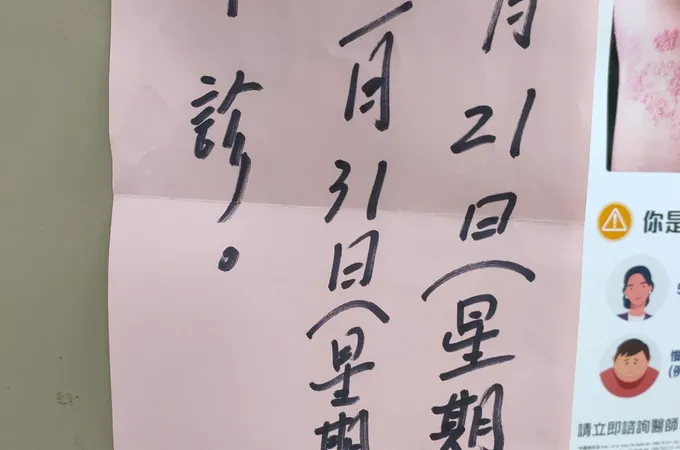 月21日(星期
一月31日(星期
診。
你是
請立即諮詢醫師